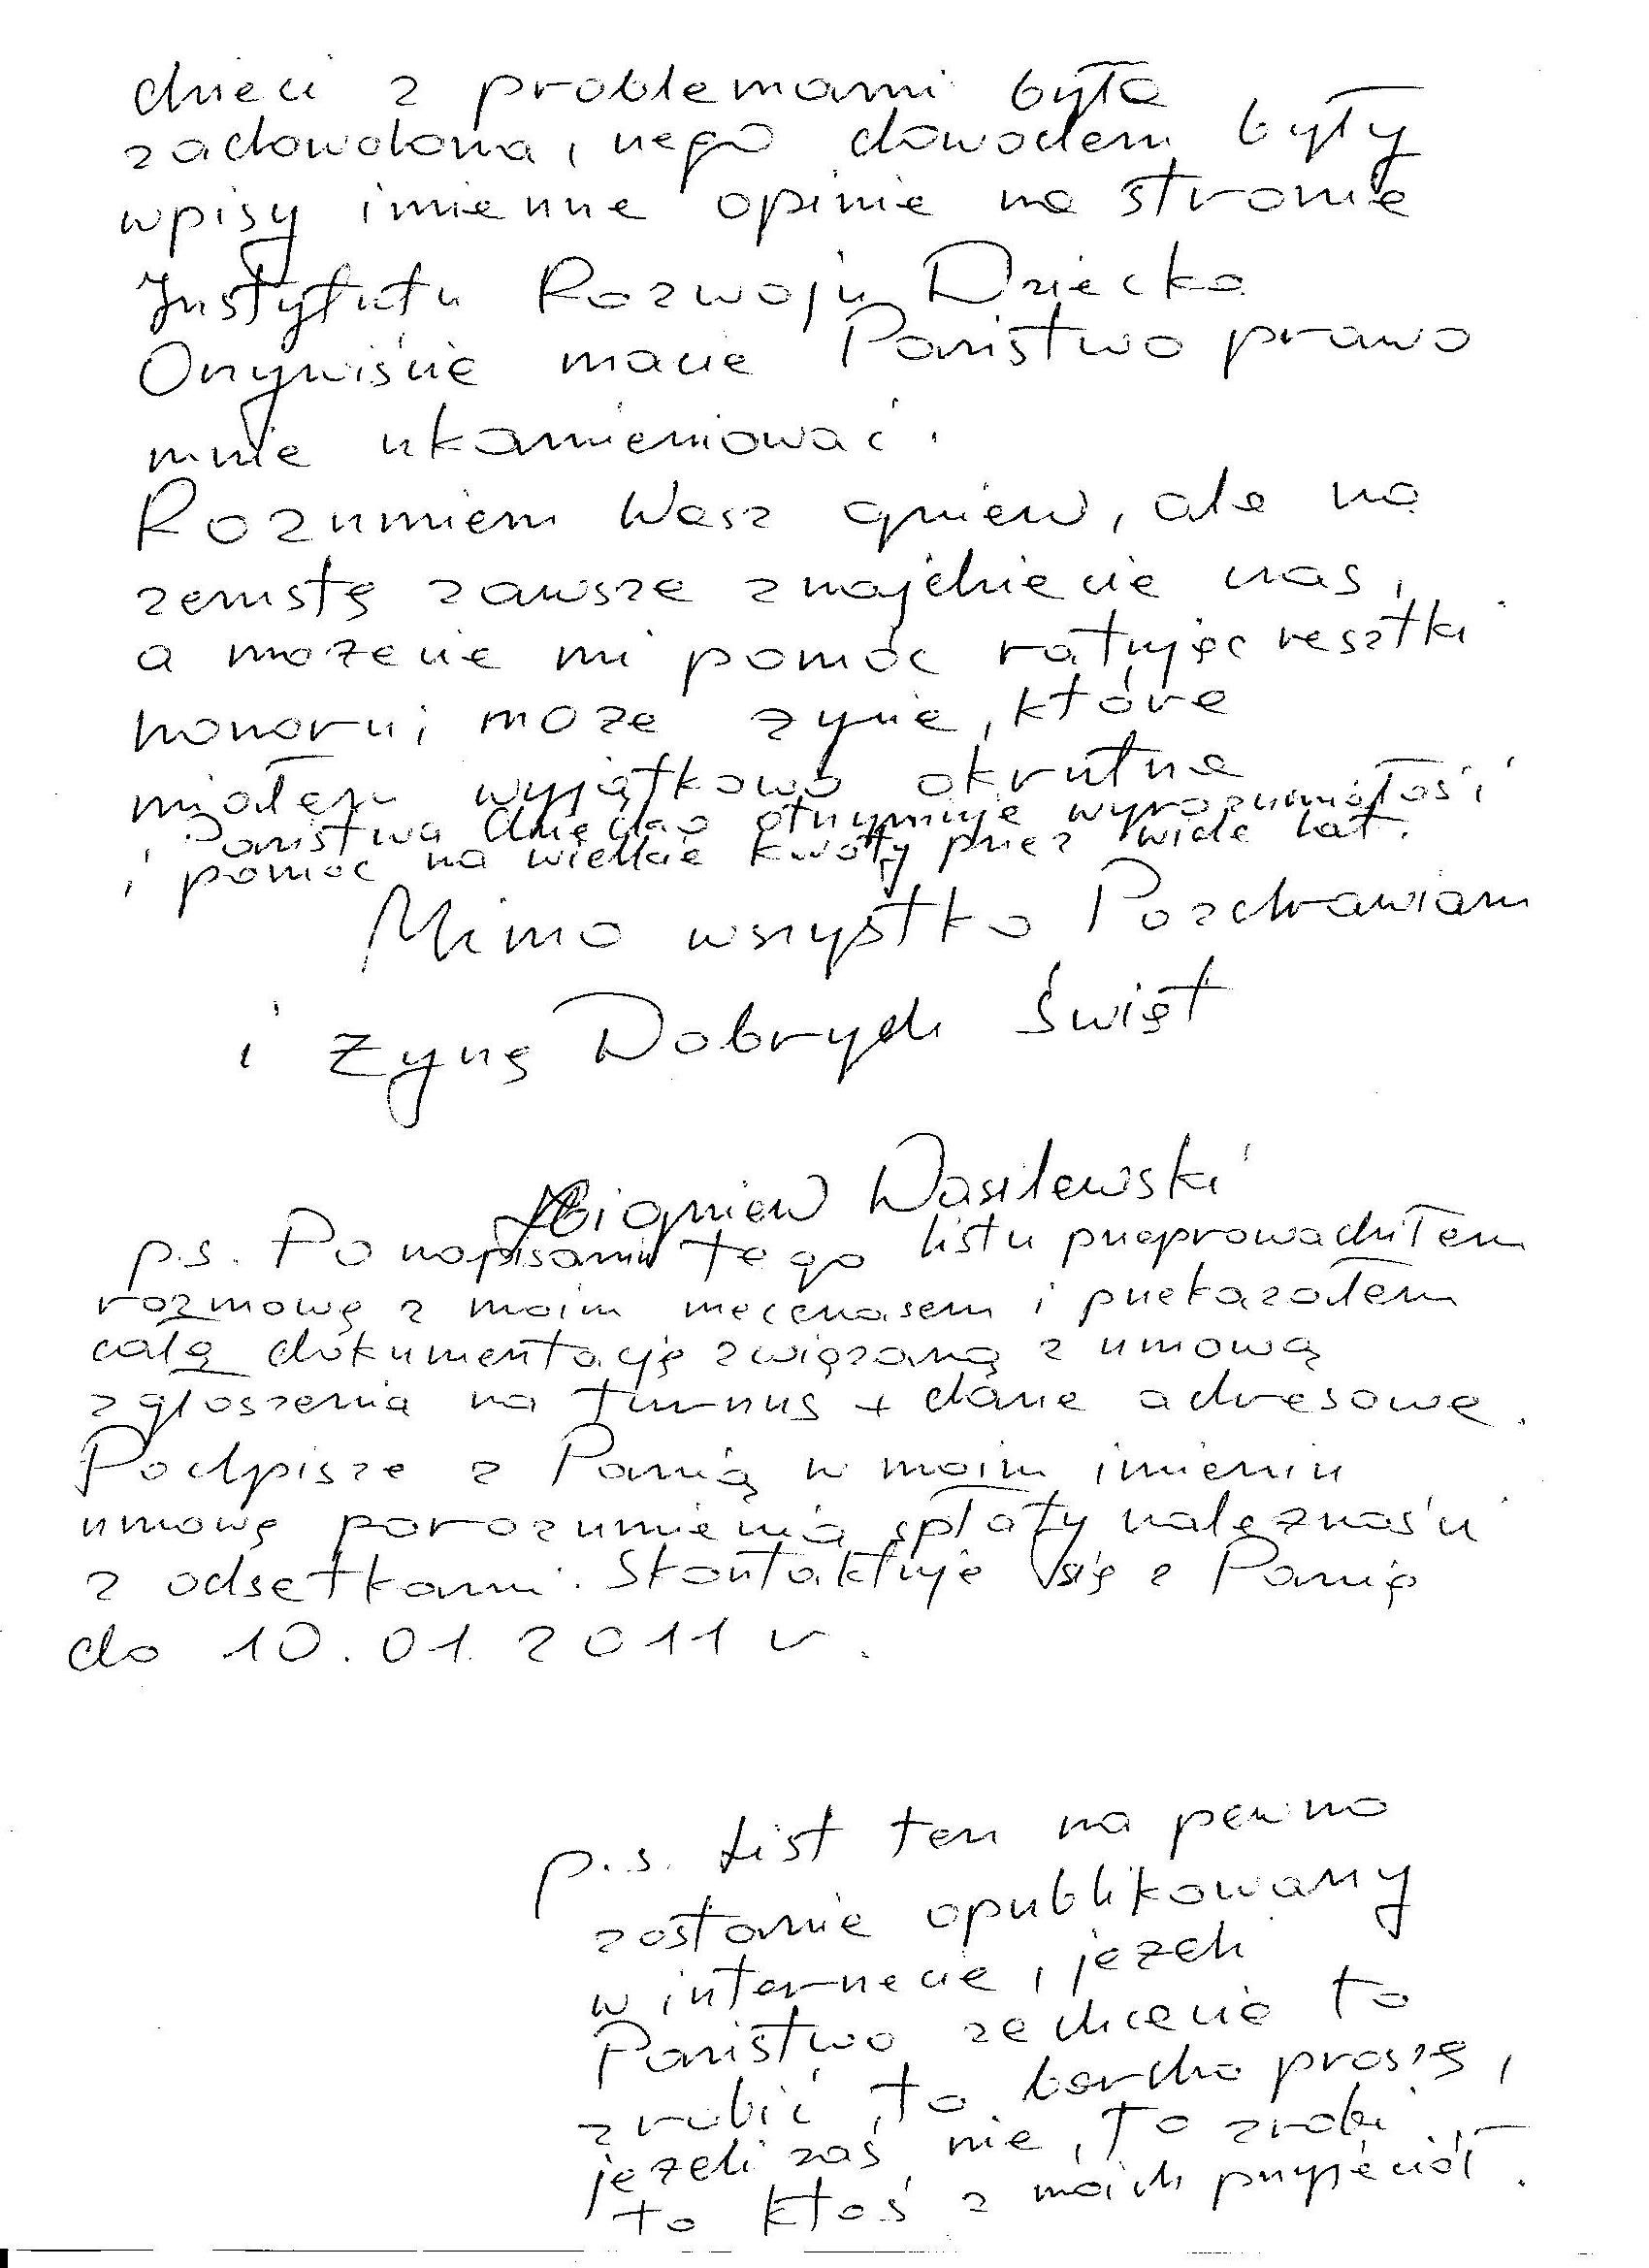 dzieci z problemami była
zadowolona, czego dowodem były
wpisy imienne opinie na stronie
Instytutu Rozwoju Dziecka
Oczywiście macie Państwo prawo
mnie ukamieniować.
Rozumiem Wasz gniew, ale na
zemstę zawsze znajdziecie czas,
a możecie mi pomóc ratując resztki
honoru i może życie, które
miałem wyjątkowo okrutne
Państwa dziecko otrzymuje wyrozumiałości
i pomoc na wielkie kwoty przez wiele lat.
Mimo wszystko Pozdrawiam
i Życzę Dobrych Świąt
Zbigniew Wasilewski
p.s. Po napisaniu tego listu przeprowadziłem
rozmowę z moim mecenasem i przekazałem
całą dokumentację związaną z umową
zgłoszenia na turnus + dane adresowe.
Podpisze z Panią w moim imieniu
umowę porozumienia spłaty należności
z odsetkami. Skontaktuje się z Panią
do 10.01.2011 r.
p.s. List ten na pewno
zostanie opublikowany
w internecie, jeżeli
Państwo zechcecie to
zrobić, to bardzo proszę,
jeżeli zaś nie, to zrobi
to ktoś z moich przyjaciół.